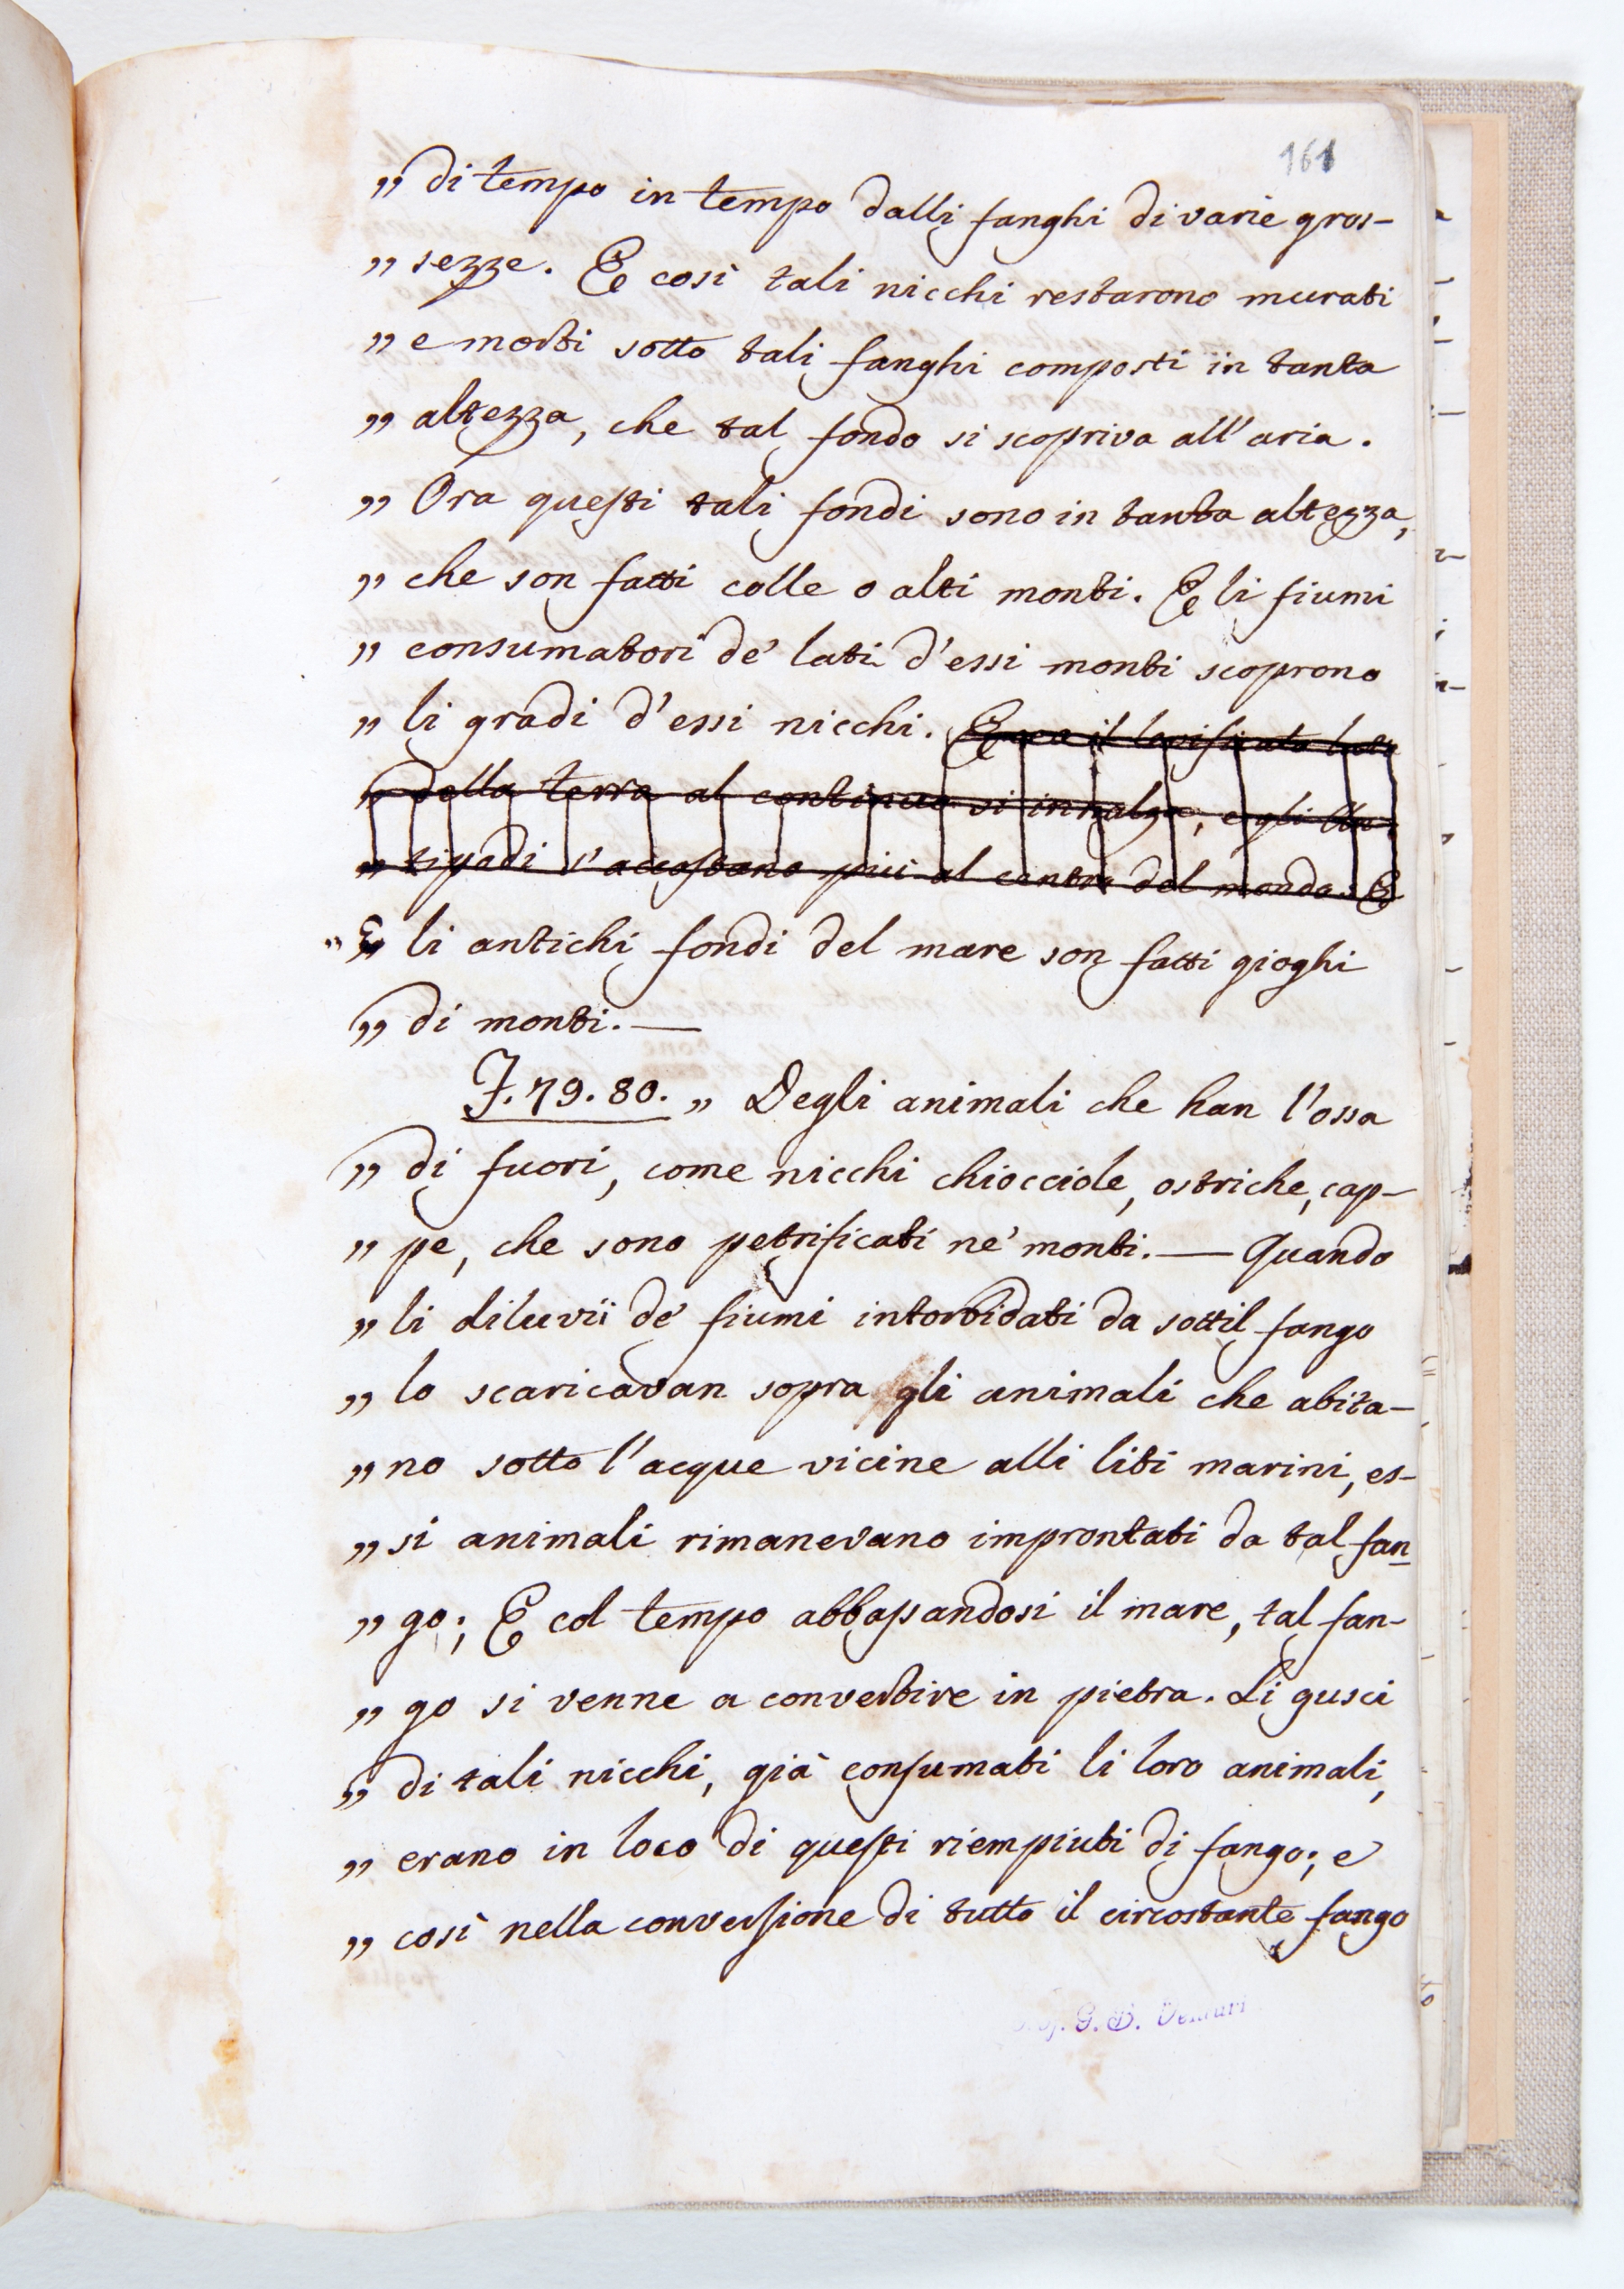 161
„ di tempo in tempo dalli fanghi di varie gros-
„ sezze. E così tali nicchi restarono murati
„ e morti sotto tali fanghi composti in tanta
„ altezza, che tal fondo si scopriva all'aria.
„ Ora questi tali fondi sono in tanta altezza,
„ che son fatti colle o alti monti. E li fiumi
„ consumatori de' lati d'essi monti scoprono
„ li gradi d'essi nicchi. E il levificato lato
„ della terra al continuo si innalza, e gli An-
„ tipodi s'accostano più al centro del mondo. E
„ E li antichi fondi del mare son fatti gioghi
„ di monti. —
F. 79. 80. „ Degli animali che han l'ossa
„ di fuori, come nicchi chiocciole, ostriche, cap-
„ pe, che sono petrificati ne' monti. — Quando
„ li diluvii de' fiumi intorbidati da sottil fango
„ lo scaricavan sopra gli animali che abita-
„ no sotto l'acque vicine alli liti marini, es-
„ si animali rimanevano improntati da tal fan
„ go; E col tempo abbassandosi il mare, tal fan-
„ go si venne a convertire in pietra. Li gusci
„ di tali nicchi, già consumati li loro animali,
„ erano in loco di questi riempiuti di fango; e
„ così nella conversione di tutto il circostante fango
G. B. Venturi